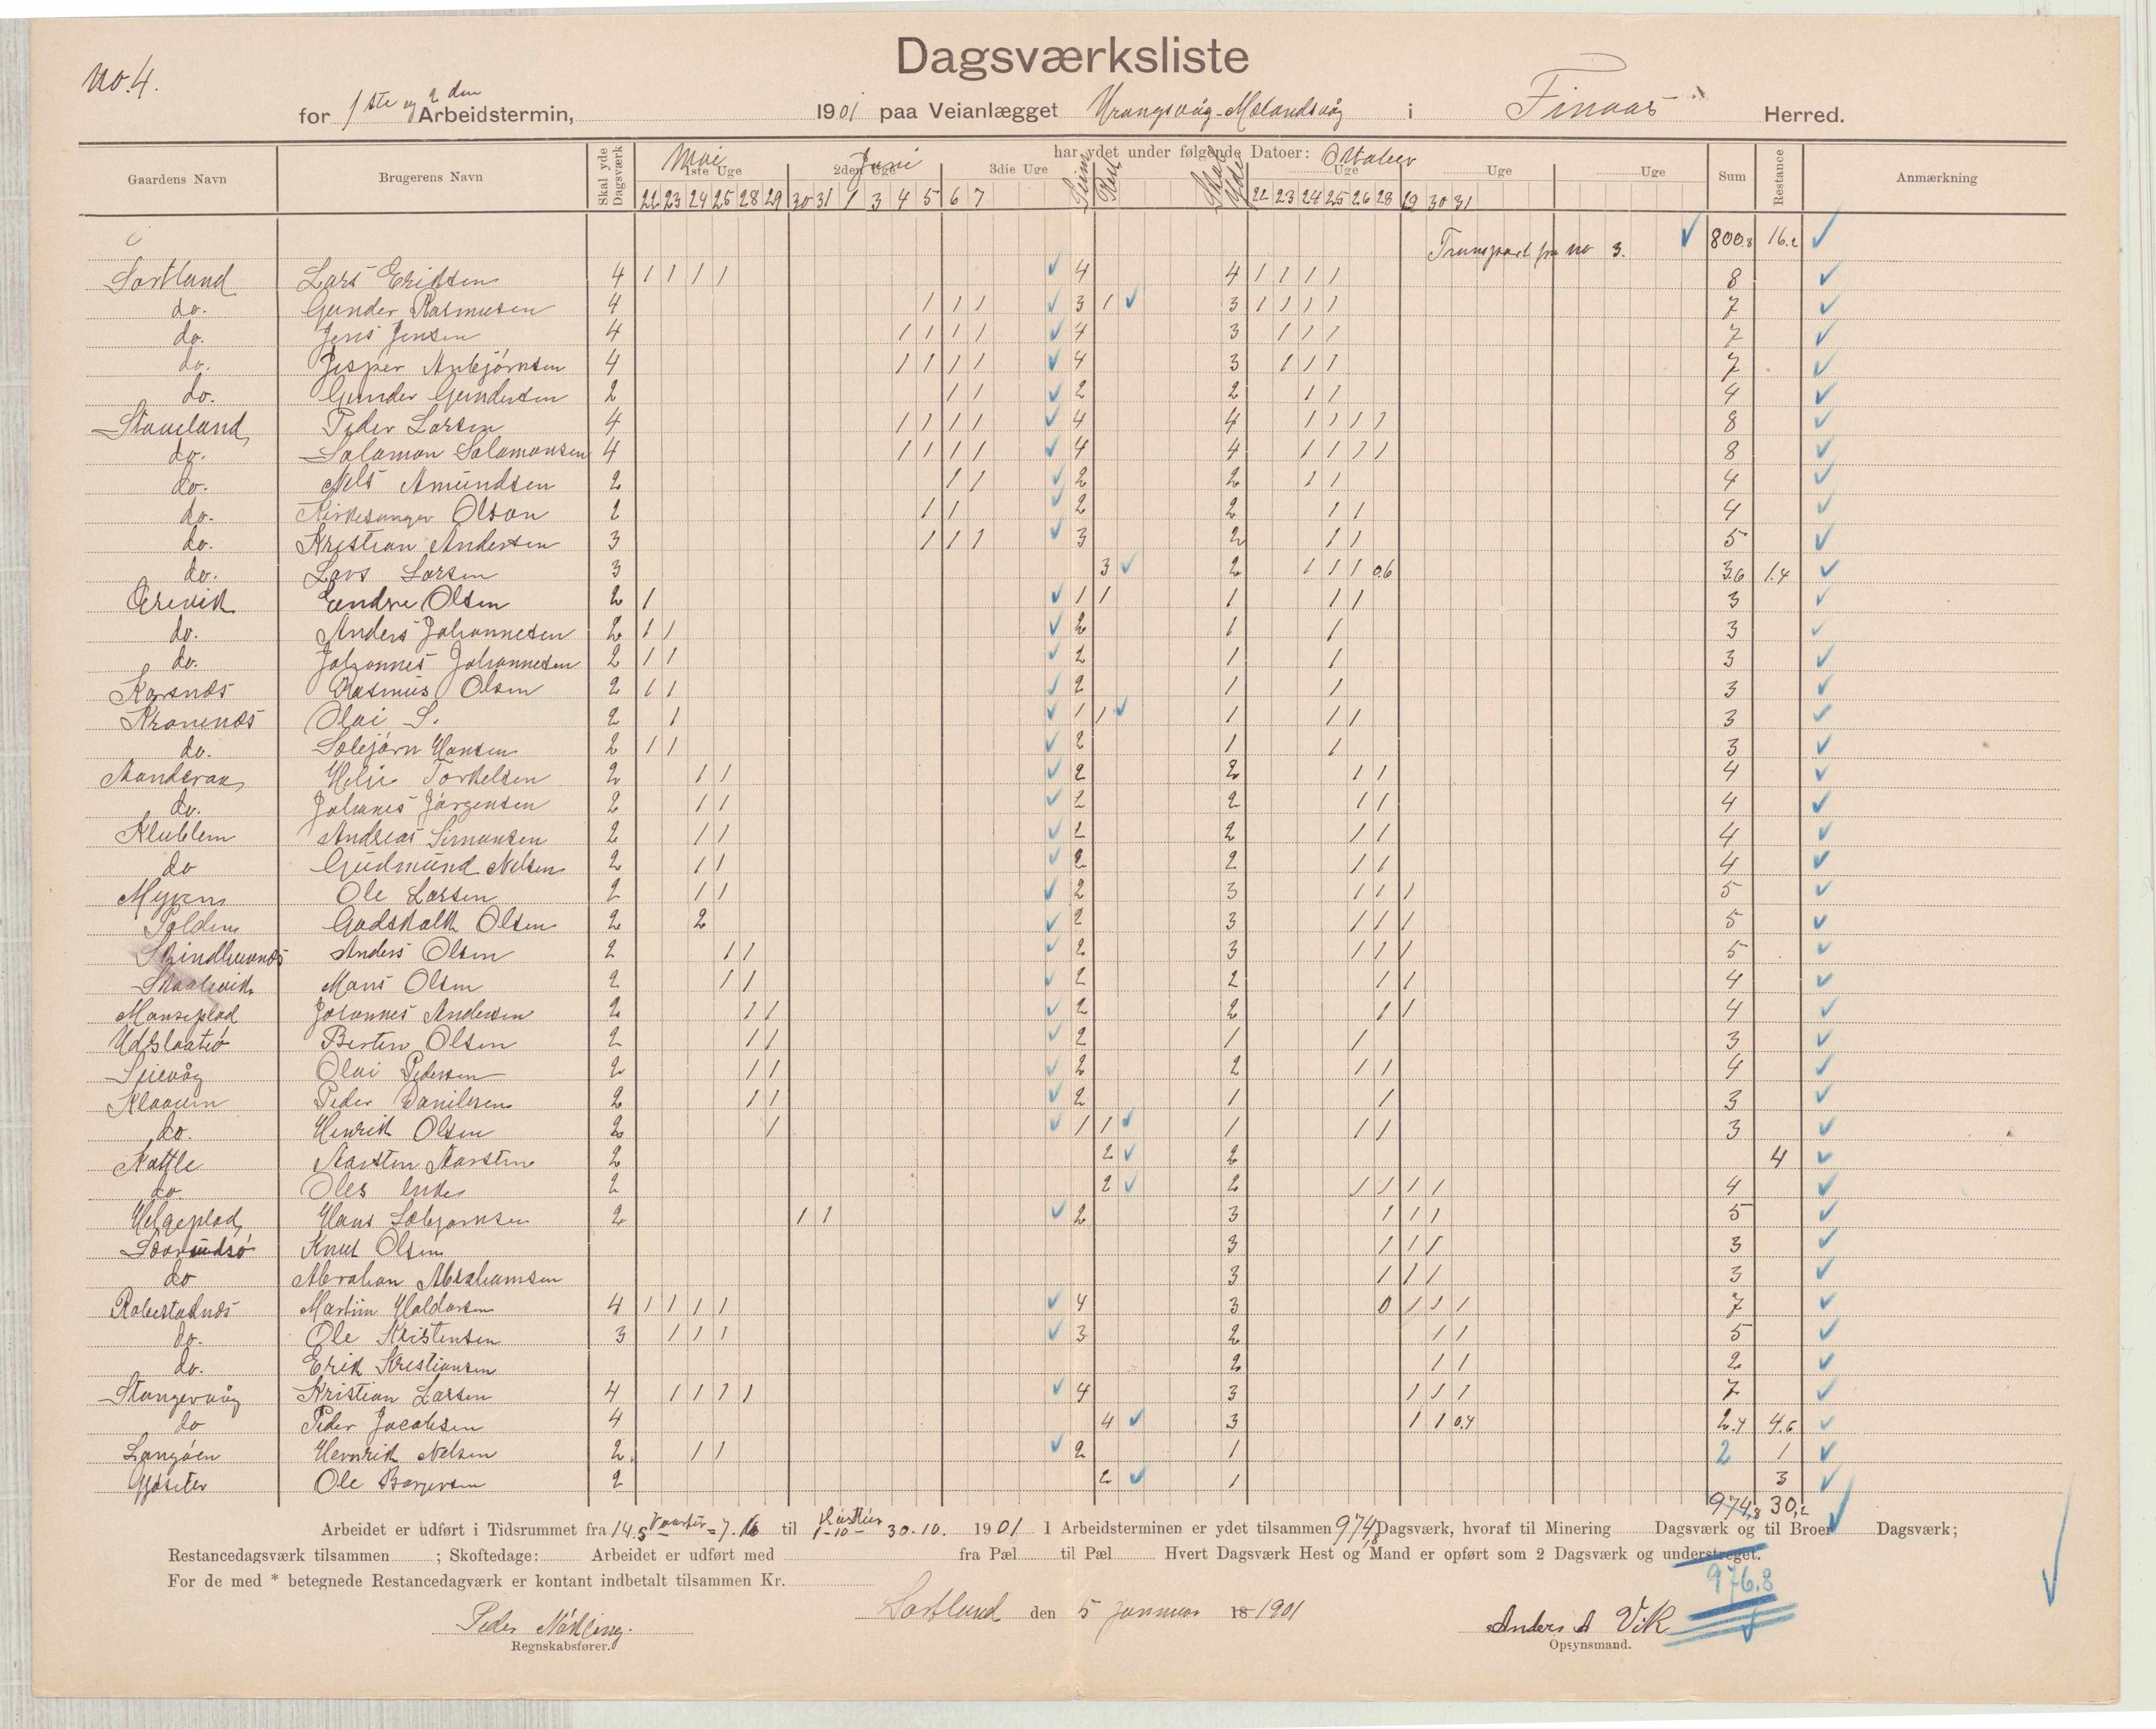 No. 4.
Dagsværksliste
for 1ste og 2den Arbeidstermin, 1901 paa Veianlægget Urangsvåg-Mælandsvåg i Finaas Herred.
Gaardens Navn Brugerens Navn Skal yde Dagsværk har ydet under følgende Datoer: Sum Restance Anmærkning
Mai Juni Oktober
1ste Uge 2den Uge 3die Uge Sum Rest Skal Yde Uge Uge Uge
22 23 24 25 28 29 30 31 1 3 4 5 6 7 22 23 24 25 26 28 29 30 31
Transport fra no 3. 800.8 16.2
Sortland Lars Eriksen 4 1 1 1 1 4 4 1 1 1 1 8
do. Gunder Rasmusen 4 1 1 1 3 1 3 1 1 1 1 7
do. Jens Jensen 4 1 1 1 1 4 3 1 1 1 7
do. Jesper Anbjørnsen 4 1 1 1 1 4 3 1 1 1 7
do. Gunder Gundersen 2 1 1 2 2 1 1 4
Staveland Peder Larsen 4 1 1 1 1 4 4 1 1 1 1 8
do. Salamon Salamonsen 4 1 1 1 1 4 4 1 1 1 1 8
do. Nils Amundsen 2 1 1 2 2 1 1 4
do. Kirkesanger Olson 2 1 1 2 2 1 1 4
do. Kristian Andersen 3 1 1 1 3 2 1 1 5
do. Lars Larsen 3 3 2 1 1 1 0.6 3.6 1.4
Grevik Endre Olsen 2 1 1 1 1 1 1 3
do. Anders Johannesen 2 1 1 2 1 1 3
do. Johannes Johannesen 2 1 1 2 1 1 3
Korsnæs Rasmus Olsen 2 1 1 2 1 1 3
Kronenæs Olai S. 2 1 1 1 1 1 1 3
do. Solbjørn Hansen 2 1 1 2 1 1 3
Helje Torkelsen 2 1 1 2 2 1 1 4
do. Johanes Jørgensen 2 1 1 2 2 1 1 4
Klublem Andreas Simonsen 2 1 1 2 2 1 1 4
do Gudmund Nelsen 2 1 1 2 2 1 1 4
Myren Ole Larsen 2 1 1 2 3 1 1 1 5
Polden Godskalk Olsen 2 2 2 3 1 1 1 5
Anders Olsen 2 1 1 2 3 1 1 1 5
Skaalevik Mons Olsen 2 1 1 2 2 1 1 4
Monseplad Johannes Andersen 2 1 1 2 2 1 1 4
Udslaatiø Berten Olsen 2 1 1 2 1 1 3
Olai Pedersen 2 1 1 2 2 1 1 4
Peder Danilsen 2 1 1 2 1 1 3
do. Henrik Olsen 2 1 1 1 1 1 1 3
Kattle Aarsten Aarsten 2 2 2 4
do Oles Enke 2 2 2 1 1 1 1 4
Helgeplad Hans Solbjørnsen 2 1 1 2 3 1 1 1 5
Knut Olsen 3 1 1 1 3
do Abraham Abrahamsen 3 1 1 1 3
Martin Haldorsen 4 1 1 1 1 4 3 0 1 1 1 7
do. Ole Kristensen 3 1 1 1 3 2 1 1 5
do. Erik Kristiansen 2 1 1 2
Stangervåg Kristian Larsen 4 1 1 1 1 4 3 1 1 1 7
do Peder Jacobsen 4 4 3 1 1 0.4 2.4 4.6
Langøen Hennrik Nelsen 2 1 1 2 1 2 1
Ole Børgersen 2 2 1 3
974,8 30,2
Arbeidet er udført i Tidsrummet fra 14.5 - 7.6 til 1-10- 30-10. 1901 I Arbeidsterminen er ydet tilsammen 974,8 Dagsværk, hvoraf til Minering Dagsværk og til Broer Dagsværk;
Restancedagsværk tilsammen ; Skoftedage: Arbeidet er udført med fra Pæl til Pæl Hvert Dagsværk Hest og Mand er opført som 2 Dagsværk og understreget.
For de med * betegnede Restancedagværk er kontant indbetalt tilsammen Kr.
976.8
Sortland den 5 Januar 18 1901
Peder Nökling. Anders A Vik
Regnskabsfører. Opsynsmand.